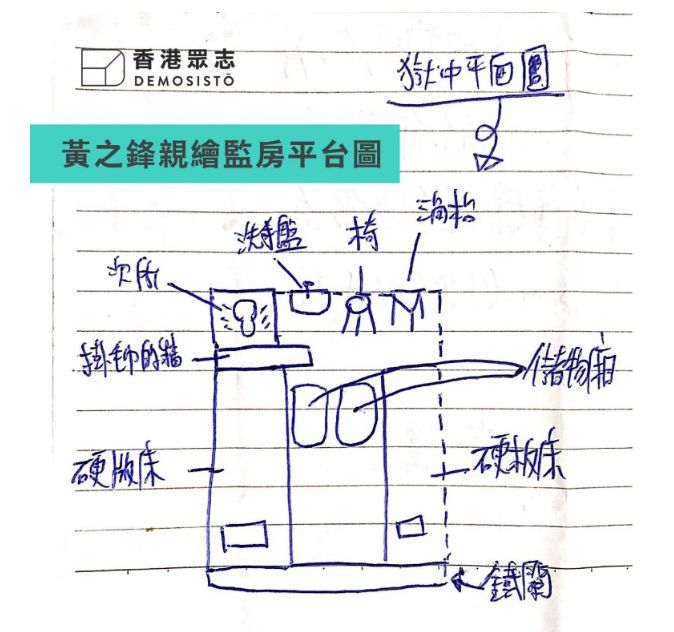 香港眾志
DEMOSISTŌ
獄中平面圖
黃之鋒親繪監房平台圖
三角枱
洗手盤
椅
掛毛巾的牆
儲物箱
硬版床
硬板床
鐵闌